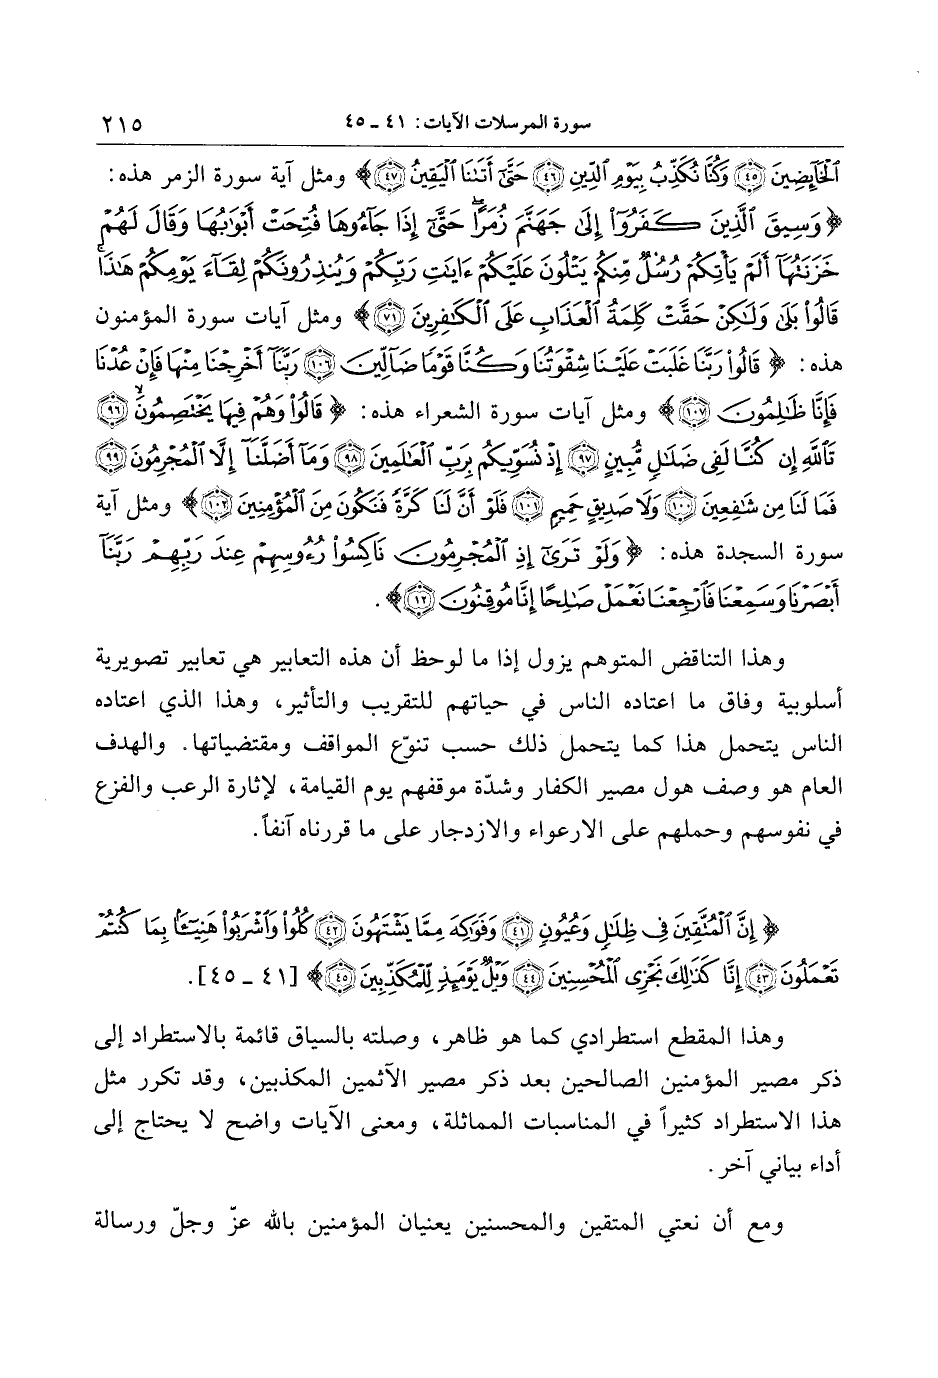 سورة المرسلات الآيات: ٤١ ـ ٤٥ ٢١٥
ٱلْخَآئِضِينَ ﴿٤٥﴾ وَكُنَّا نُكَذِّبُ بِيَوْمِ ٱلدِّينِ ﴿٤٦﴾ حَتَّىٰٓ أَتَىٰنَا ٱلْيَقِينُ ﴿٤٧﴾﴾ ومثل آية سورة الزمر هذه:
﴿وَسِيقَ ٱلَّذِينَ كَفَرُوٓا۟ إِلَىٰ جَهَنَّمَ زُمَرًا ۖ حَتَّىٰٓ إِذَا جَآءُوهَا فُتِحَتْ أَبْوَٰبُهَا وَقَالَ لَهُمْ
خَزَنَتُهَآ أَلَمْ يَأْتِكُمْ رُسُلٌ مِّنكُمْ يَتْلُونَ عَلَيْكُمْ ءَايَٰتِ رَبِّكُمْ وَيُنذِرُونَكُمْ لِقَآءَ يَوْمِكُمْ هَٰذَا ۚ
قَالُوا۟ بَلَىٰ وَلَٰكِنْ حَقَّتْ كَلِمَةُ ٱلْعَذَابِ عَلَى ٱلْكَٰفِرِينَ ﴿٧١﴾﴾ ومثل آيات سورة المؤمنون
هذه: ﴿قَالُوا۟ رَبَّنَا غَلَبَتْ عَلَيْنَا شِقْوَتُنَا وَكُنَّا قَوْمًا ضَآلِّينَ ﴿١٠٦﴾ رَبَّنَآ أَخْرِجْنَا مِنْهَا فَإِنْ عُدْنَا
فَإِنَّا ظَٰلِمُونَ ﴿١٠٧﴾﴾ ومثل آيات سورة الشعراء هذه: ﴿قَالُوا۟ وَهُمْ فِيهَا يَخْتَصِمُونَ ﴿٩٦﴾
تَٱللَّهِ إِن كُنَّا لَفِى ضَلَٰلٍ مُّبِينٍ ﴿٩٧﴾ إِذْ نُسَوِّيكُم بِرَبِّ ٱلْعَٰلَمِينَ ﴿٩٨﴾ وَمَآ أَضَلَّنَآ إِلَّا ٱلْمُجْرِمُونَ ﴿٩٩﴾
فَمَا لَنَا مِن شَٰفِعِينَ ﴿١٠٠﴾ وَلَا صَدِيقٍ حَمِيمٍ ﴿١٠١﴾ فَلَوْ أَنَّ لَنَا كَرَّةً فَنَكُونَ مِنَ ٱلْمُؤْمِنِينَ ﴿١٠٢﴾﴾ ومثل آية
سورة السجدة هذه: ﴿وَلَوْ تَرَىٰٓ إِذِ ٱلْمُجْرِمُونَ نَاكِسُوا۟ رُءُوسِهِمْ عِندَ رَبِّهِمْ رَبَّنَآ
أَبْصَرْنَا وَسَمِعْنَا فَٱرْجِعْنَا نَعْمَلْ صَٰلِحًا إِنَّا مُوقِنُونَ ﴿١٢﴾﴾.
وهذا التناقض المتوهم يزول إذا ما لوحظ أن هذه التعابير هي تعابير تصويرية
أسلوبية وفاق ما اعتاده الناس في حياتهم للتقريب والتأثير، وهذا الذي اعتاده
الناس يتحمل هذا كما يتحمل ذلك حسب تنوّع المواقف ومقتضياتها. والهدف
العام هو وصف هول مصير الكفار وشدّة موقفهم يوم القيامة، لإثارة الرعب والفزع
في نفوسهم وحملهم على الارعواء والازدجار على ما قررناه آنفاً.
﴿إِنَّ ٱلْمُتَّقِينَ فِى ظِلَٰلٍ وَعُيُونٍ ﴿٤١﴾ وَفَوَٰكِهَ مِمَّا يَشْتَهُونَ ﴿٤٢﴾ كُلُوا۟ وَٱشْرَبُوا۟ هَنِيٓـًٔۢا بِمَا كُنتُمْ
تَعْمَلُونَ ﴿٤٣﴾ إِنَّا كَذَٰلِكَ نَجْزِى ٱلْمُحْسِنِينَ ﴿٤٤﴾ وَيْلٌ يَوْمَئِذٍ لِّلْمُكَذِّبِينَ ﴿٤٥﴾﴾ [٤١ ـ ٤٥].
وهذا المقطع استطرادي كما هو ظاهر، وصلته بالسياق قائمة بالاستطراد إلى
ذكر مصير المؤمنين الصالحين بعد ذكر مصير الآثمين المكذبين، وقد تكرر مثل
هذا الاستطراد كثيراً في المناسبات المماثلة، ومعنى الآيات واضح لا يحتاج إلى
أداء بياني آخر.
ومع أن نعتي المتقين والمحسنين يعنيان المؤمنين بالله عزّ وجلّ ورسالة